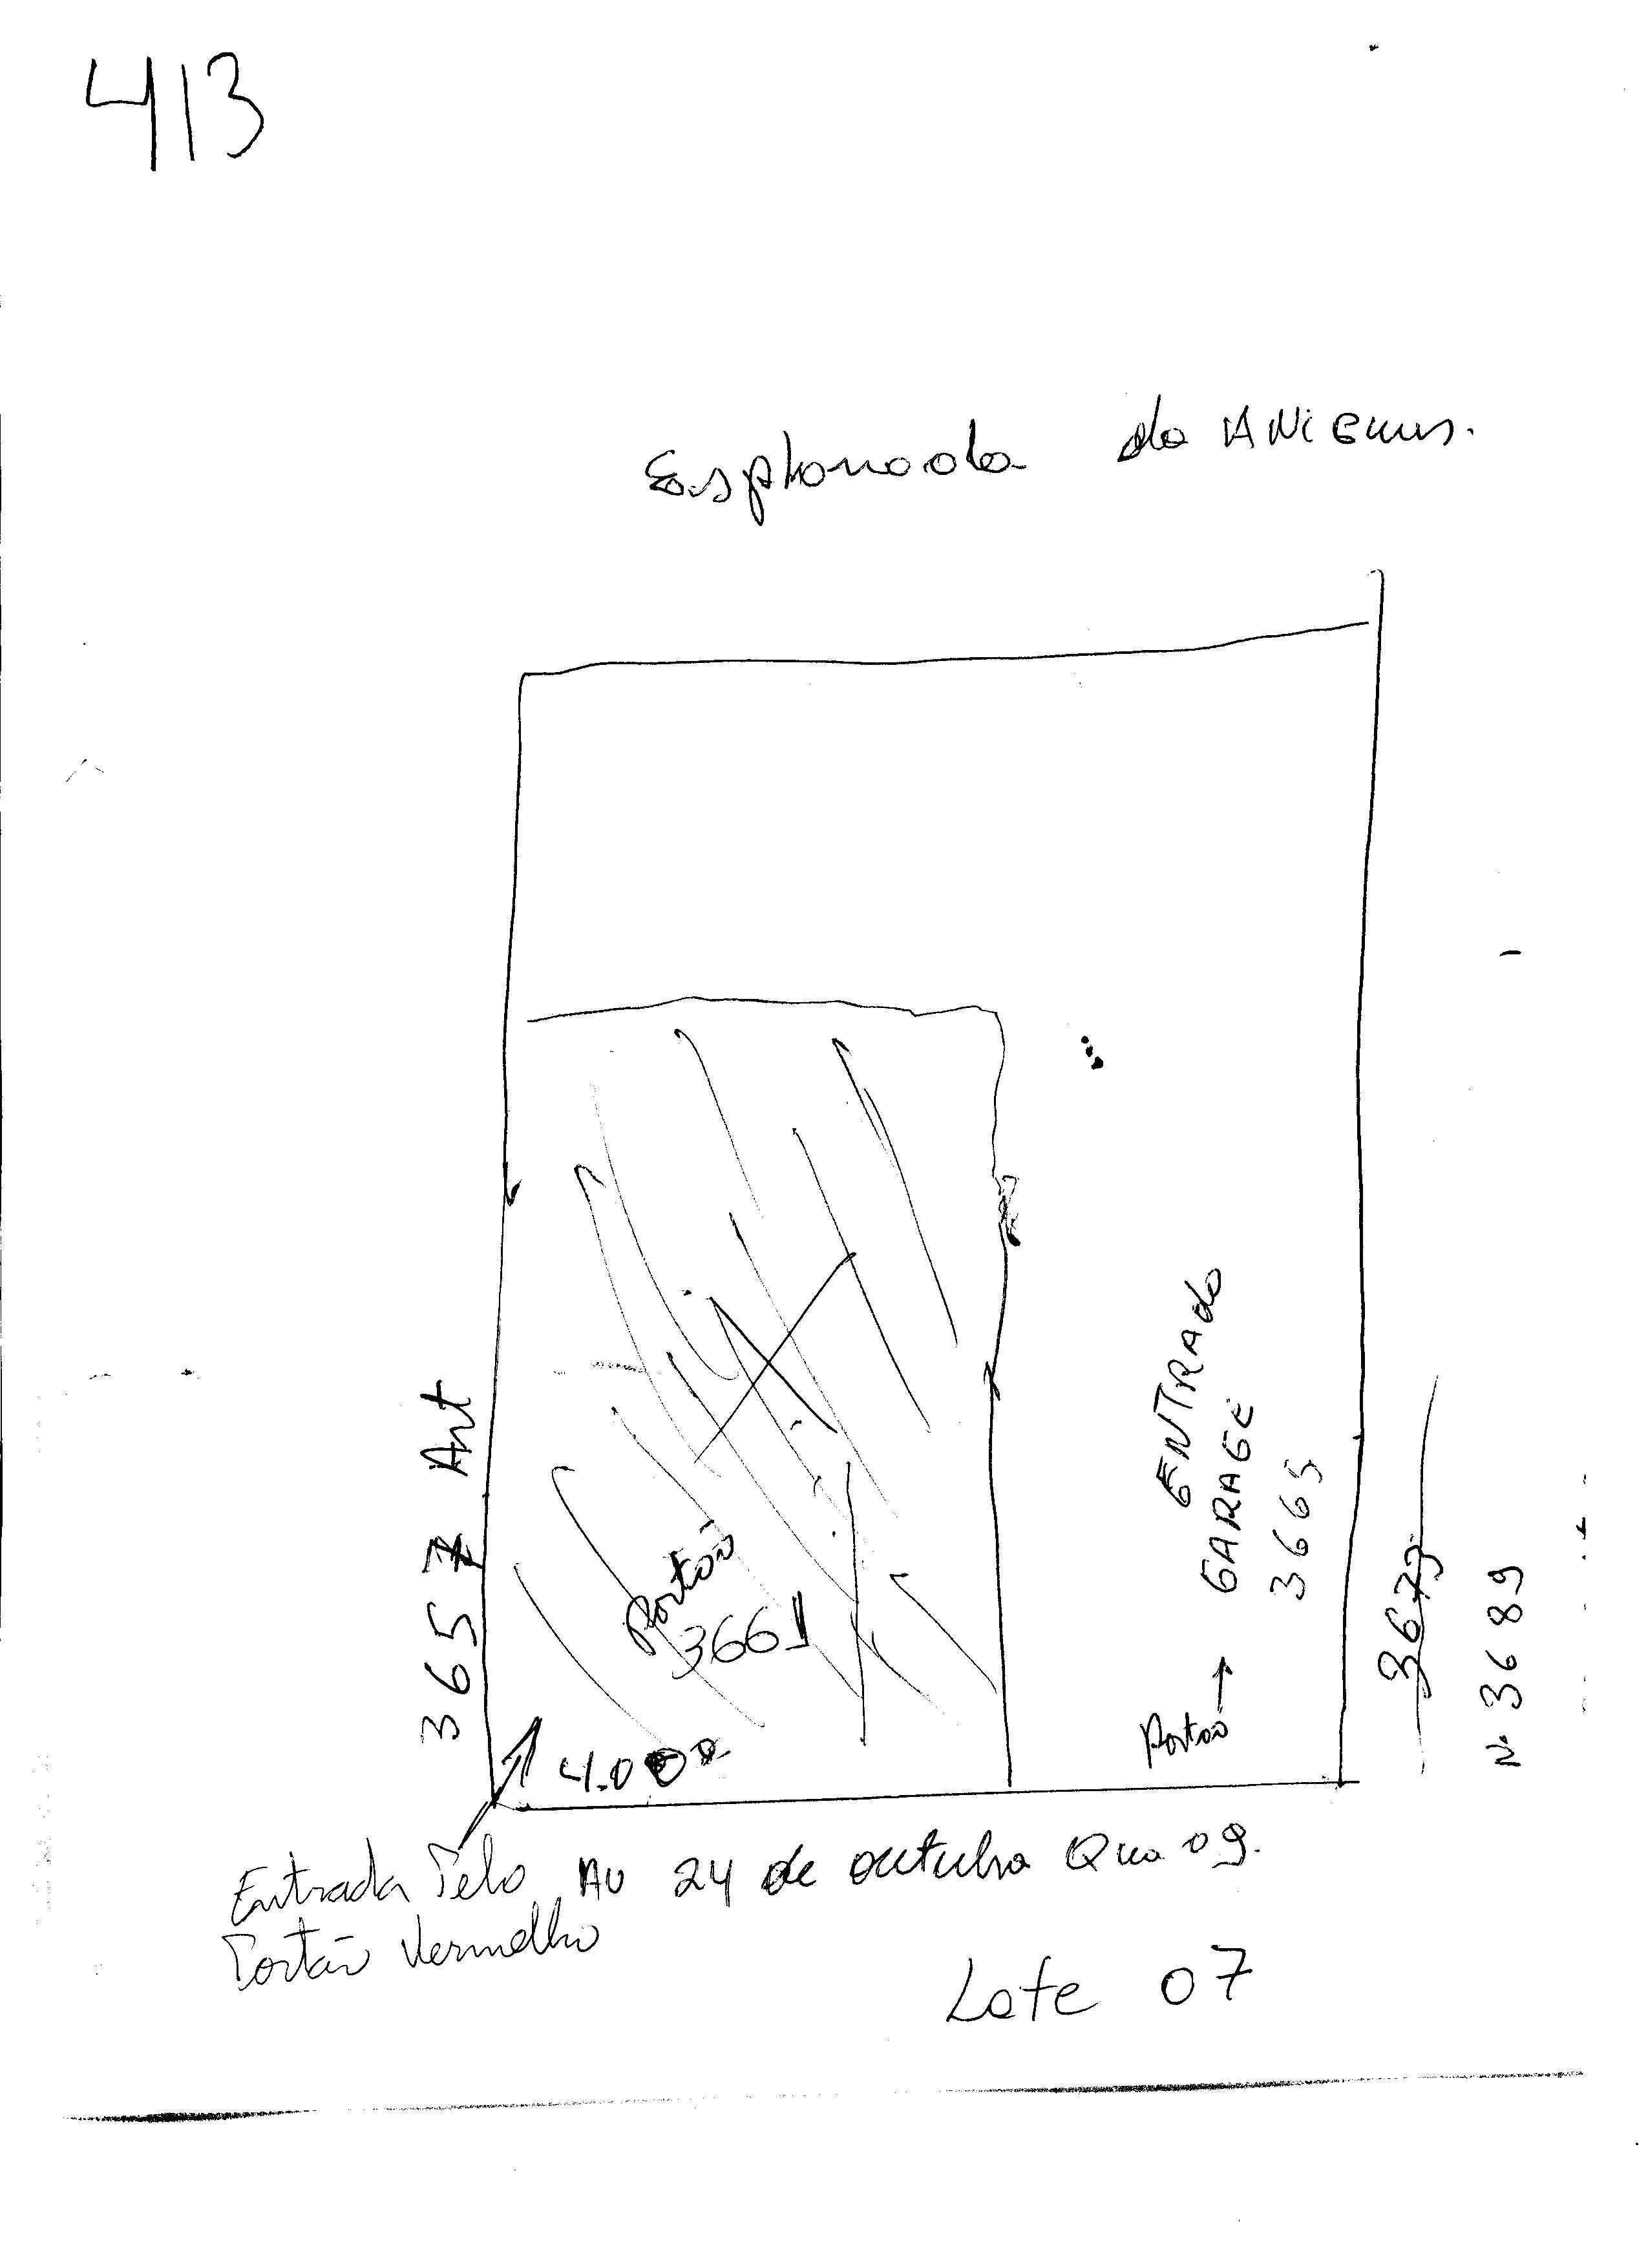 413
Esplanada do ANiCuns.
3657 Ant
Portão
3661
ENTRAdo
GARAGE
3665
Portão
3673
N. 3689
4.000
Entrada Pelo
Portão Vermelho
AV 24 de outubro Qua 09.
Lote 07